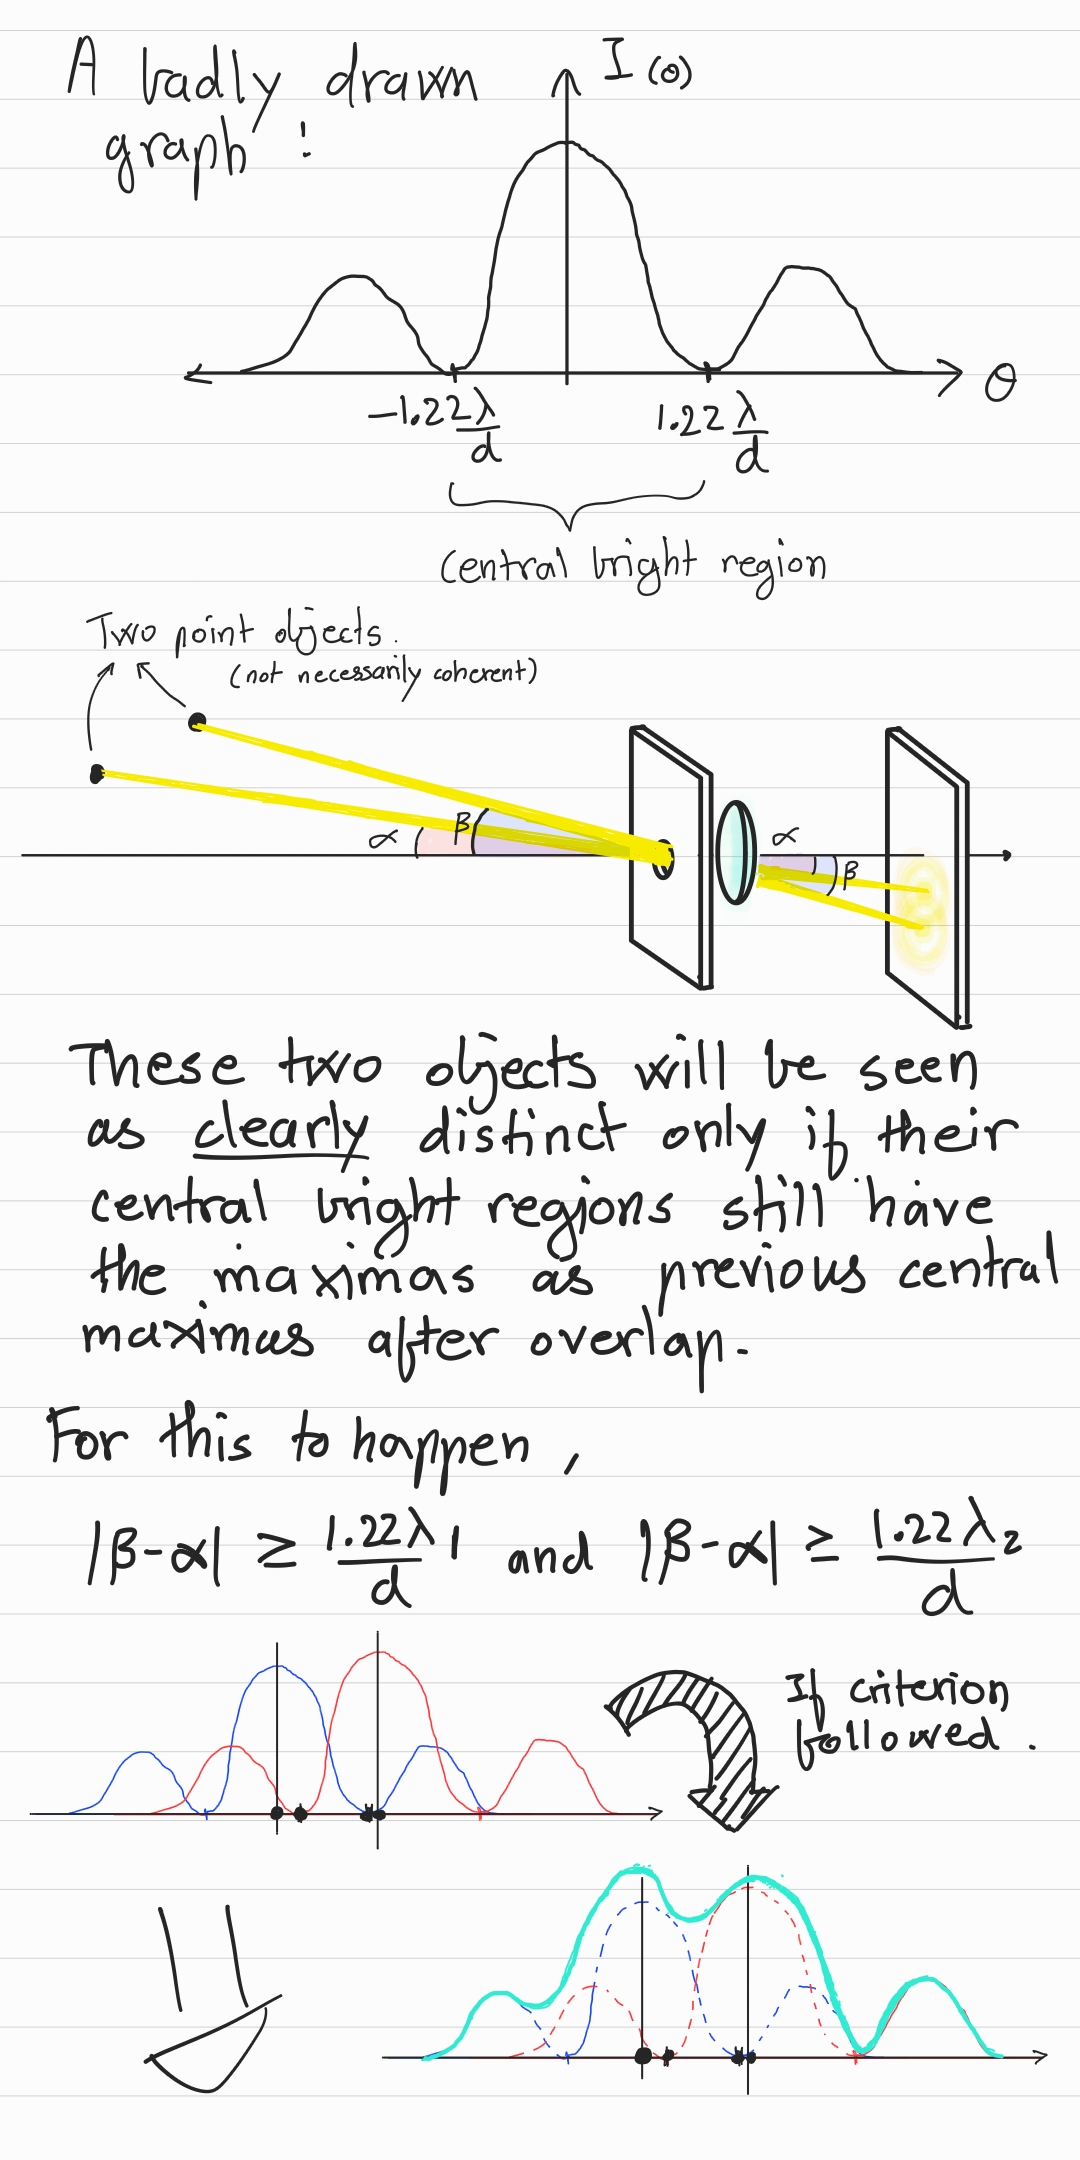 A badly drawn
graph!
I(θ)
θ
-1.22λ/d
1.22λ/d
Central bright region
Two point objects.
(not necessarily coherent)
α
β
α
β
These two objects will be seen
as clearly distinct only if their
central bright regions still have
the maximas as previous central
maximas after overlap.
For this to happen,
|β-α| ≥ 1.22λ1/d and |β-α| ≥ 1.22λ2/d
If criterion
followed.